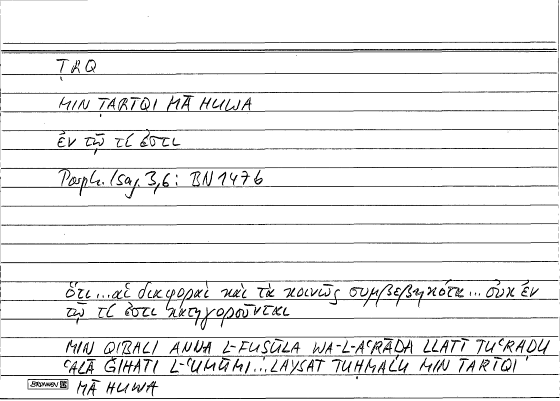 ṬRQ
MIN ṬARĪQI MĀ HUWA
ἐν τῷ τί ἐστι
Porph. Isag. 3,6: BN 147b
ὅτι...αἱ διαφοραὶ καὶ τὰ κοινῶς συμβεβηκότα...οὐκ ἐν
τῷ τί ἐστι κατηγοροῦνται
MIN QIBALI ANNA L-FUṢŪLA WA-L-AʿRĀḌA LLATĪ TUʿRAḌU
ʿALĀ ǦIHATI L-ʿUMŪMI...LAYSAT TUḤMALU MIN ṬARĪQI
MĀ HUWA
BRUNNEN